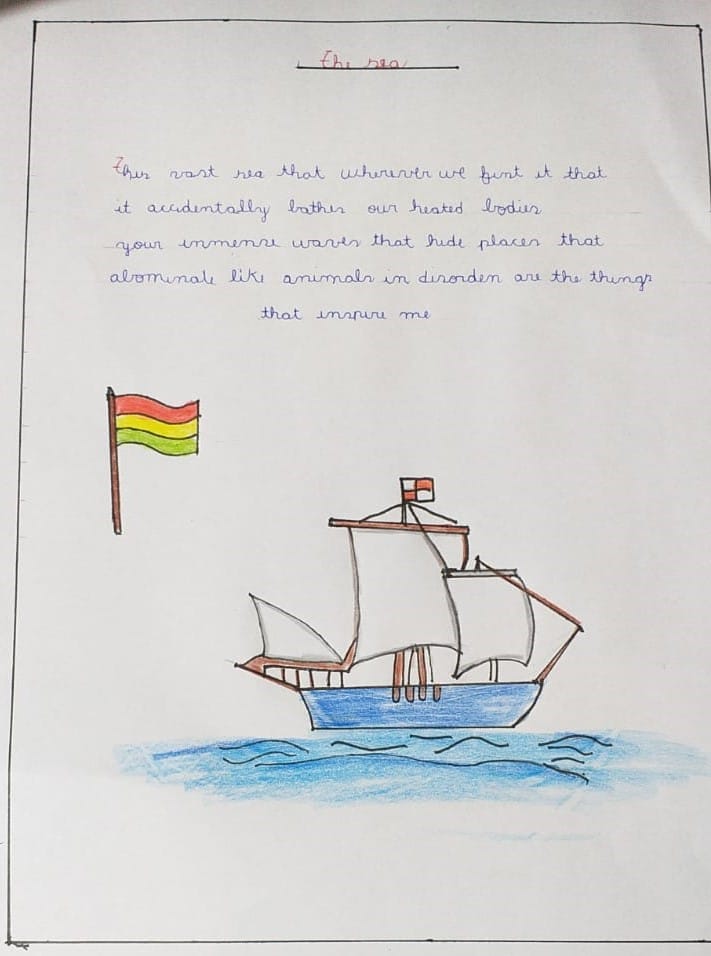 the sea
this vast sea that wherever we fint it that
it accidentally bathes our heated bodies
your inmense waves that hide places that
abominate like animals in disorden are the things
that inspire me